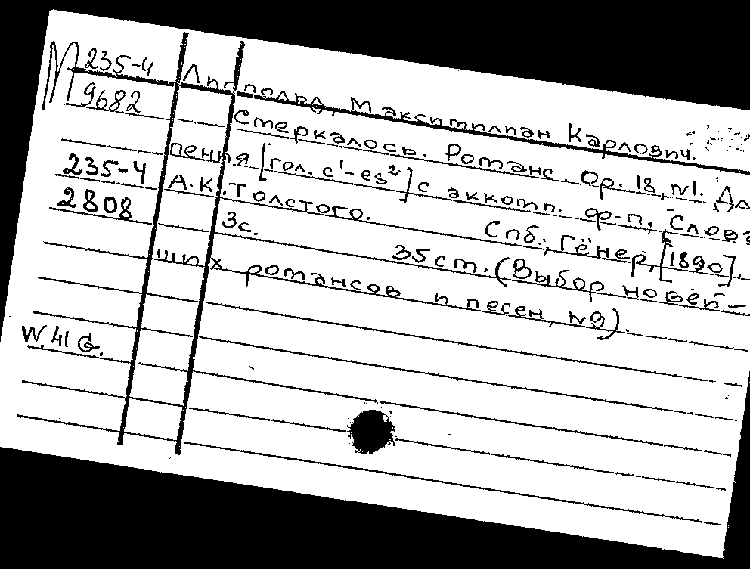 М 235-4
9682
Липпольд, Максимилиан Карлович.
Смеркалось. Романс. Ор. 18, №1. Дл
235-4
пения [гол. c¹-es²] с аккомп. ф-п. Слова
2808
А.К. Толстого. Спб., Гёнер, [1890].
3с. 35 cm. (Выбор новей-
ших романсов и песен, №9)
W. 41 G.